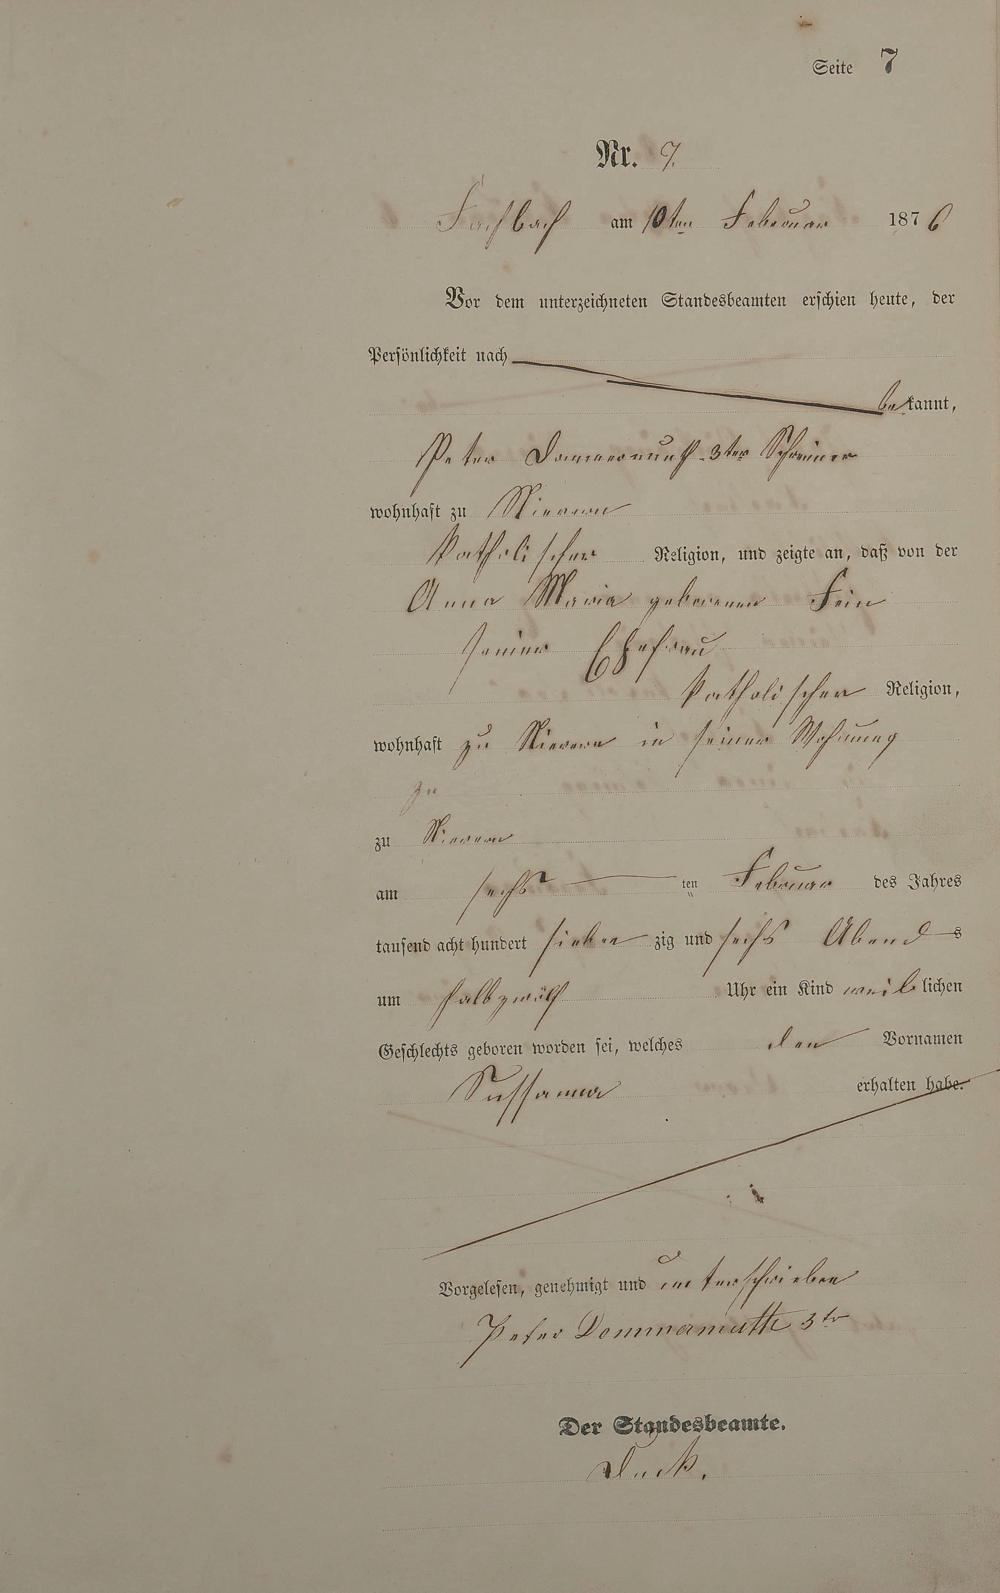 Seite 7
Nr. 7.
Fachbach am 10ten Februar 1876
Vor dem unterzeichneten Standesbeamten erschien heute, der
Persönlichkeit nach
bekannt,
Peter Dommermuth 3ter Schreiner
wohnhaft zu Nievern
katholischer Religion, und zeigte an, daß von der
Anna Maria geborenen Fein
seiner Ehefrau
katholischer Religion,
wohnhaft zu Nievern in seiner Wohnung
zu
zu Nievern
am sechs ten Februar des Jahres
tausend acht hundert sieben zig und sechs Abends
um halbzwölf Uhr ein Kind weiblichen
Geschlechts geboren worden sei, welches den Vornamen
Sussanna erhalten habe.
Vorgelesen, genehmigt und unterschrieben
Peter Dommermuth 3tr
Der Standesbeamte.